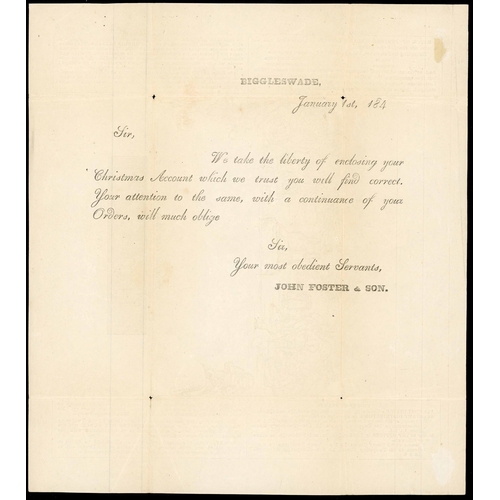 BIGGLESWADE,
January 1st, 184
Sir,
We take the liberty of enclosing your
Christmas Account which we trust you will find correct.
Your attention to the same, with a continuance of your
Orders, will much oblige
Sir,
Your most obedient Servants,
JOHN FOSTER & SON.